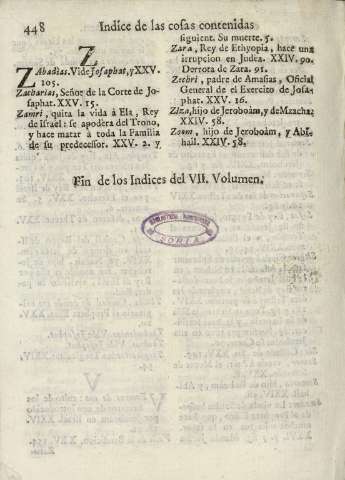 448 Indice de las cosas contenidas
Z
ZAbadias. Vide Josaphat, y XXV.
105.
Zacharias, Señor de la Corte de Jo-
saphat. XXV. 15.
Zamri, quita la vida à Ela, Rey
de Israel: se apodera del Trono,
y hace matar à toda la Familia
de su predecesor. XXV. 2. y
siguient. Su muerte. 5.
Zara, Rey de Ethyopia, hace una
irrupcion en Judea. XXIV. 90.
Derrota de Zara. 91.
Zechri, padre de Amasias, Oficial
General de el Exercito de Josa-
phat. XXV. 16.
Ziza, hijo de Jeroboàm, y de Maacha.
XXIV. 58.
Zoom, hijo de Jeroboàm, y Abi-
hail. XXIV. 58.
Fin de los Indices del VII. Volumen.
SORIA